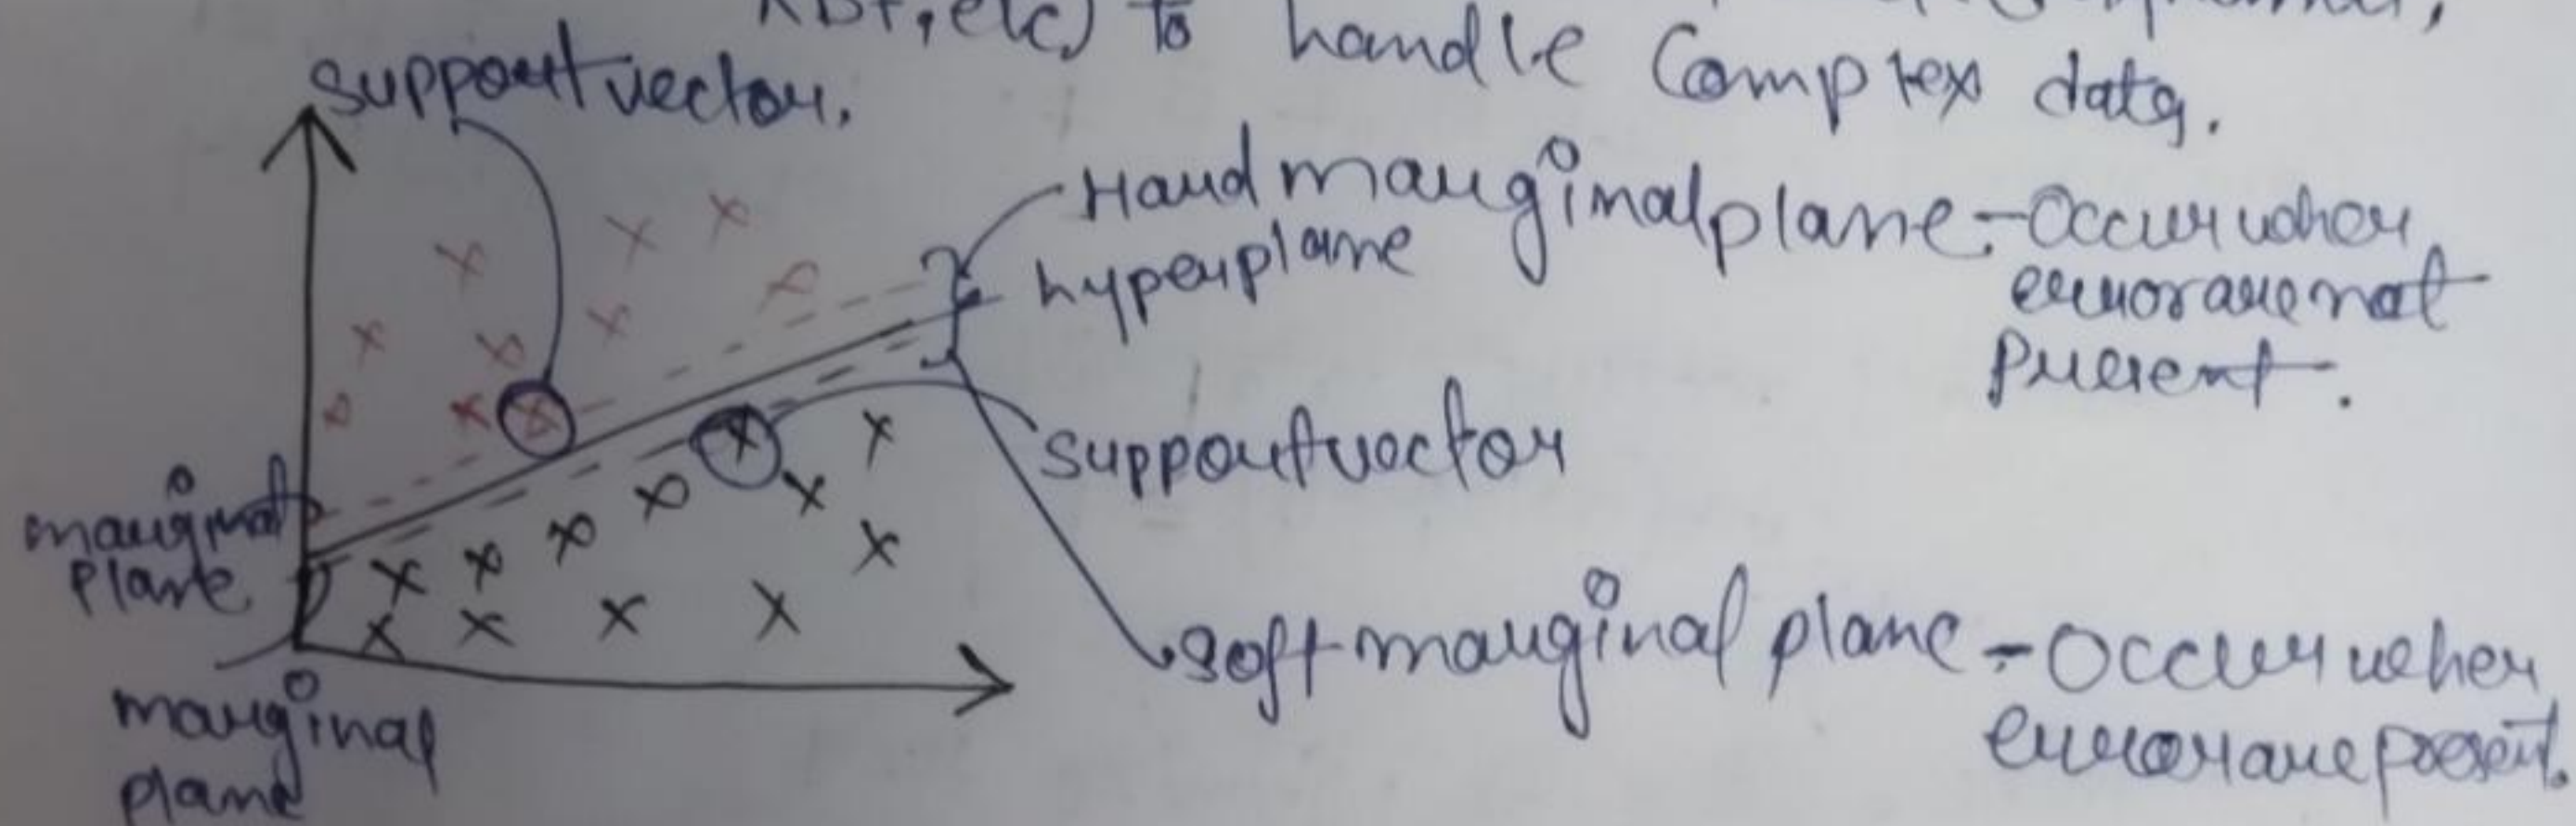 RBF, etc) to handle Complex data.
support vector.
Hard marginal plane - Occur when
error are not
present.
hyperplane
support vector
marginal
plane
soft marginal plane - Occur when
error are present.
marginal
plane